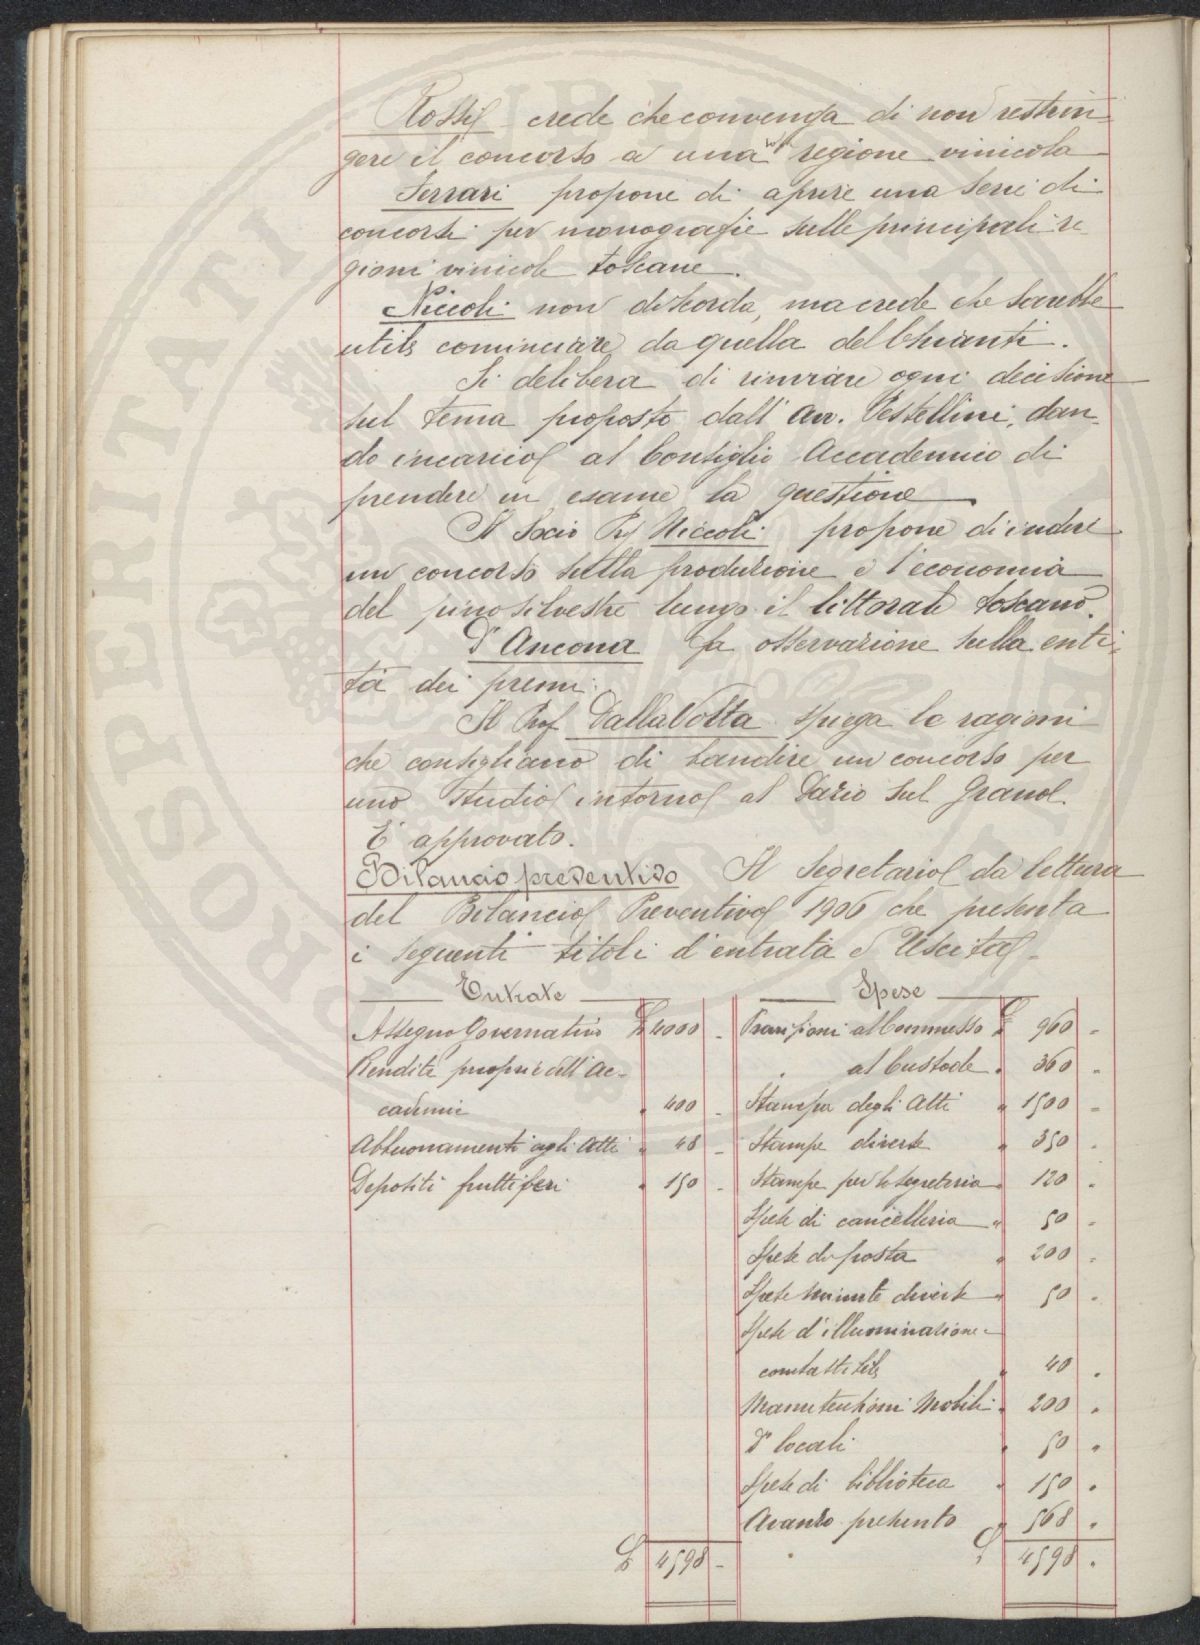 Rossi crede che convenga di non restrin-
gere il concorso a una sola regione vinicola
Ferrari propone di aprire una serie di
concorsi per monografie sulle principali re
gioni vinicole toscane.
Niccoli non discorda, ma crede che sarebbe
utile cominciare da quella del Chianti.
Si delibera di rinviare ogni decisione
sul tema proposto dall' Avv. Pestellini, dan-
do incarico al Consiglio Accademico di
prendere in esame la questione
Il Socio Prof Niccoli propone di indire
un concorso sulla produzione e l'economia
del pino silvestre lungo il littorale toscano.
D'Ancona fa osservazione sulla enti-
tà dei premi.
Il Prof Dalla Volta spiega le ragioni
che consigliano di bandire un concorso per
uno studio intorno al Dazio sul Grano.
E' approvato.
Bilancio preventivo Il Segretario dà lettura
del Bilancio Preventivo 1906 che presenta
i seguenti titoli d'entrata e Uscita.
Entrate Spese
Assegno Governativo £ 4000 - al Commesso £ 960 -
Rendite proprie dell'Ac- al Custode " 360 -
cademie " 400 - Stampa degli Atti " 1500 -
Abbuonamenti agli Atti " 48 - Stampe diverse " 350 -
Depositi fruttiferi " 150 - Stampe per la segreteria " 120 -
Spese di cancelleria " 50 -
Spese di posta " 200 -
Spese minute diverse " 50 -
Spese d'illuminazione e
combustibile " 40 -
Manutenzioni Mobili " 200 -
D° locali " 50 -
Spese di biblioteca " 150 -
Avanzo presunto " 568 -
£ 4598 - £ 4598 -
PROSPERITATI